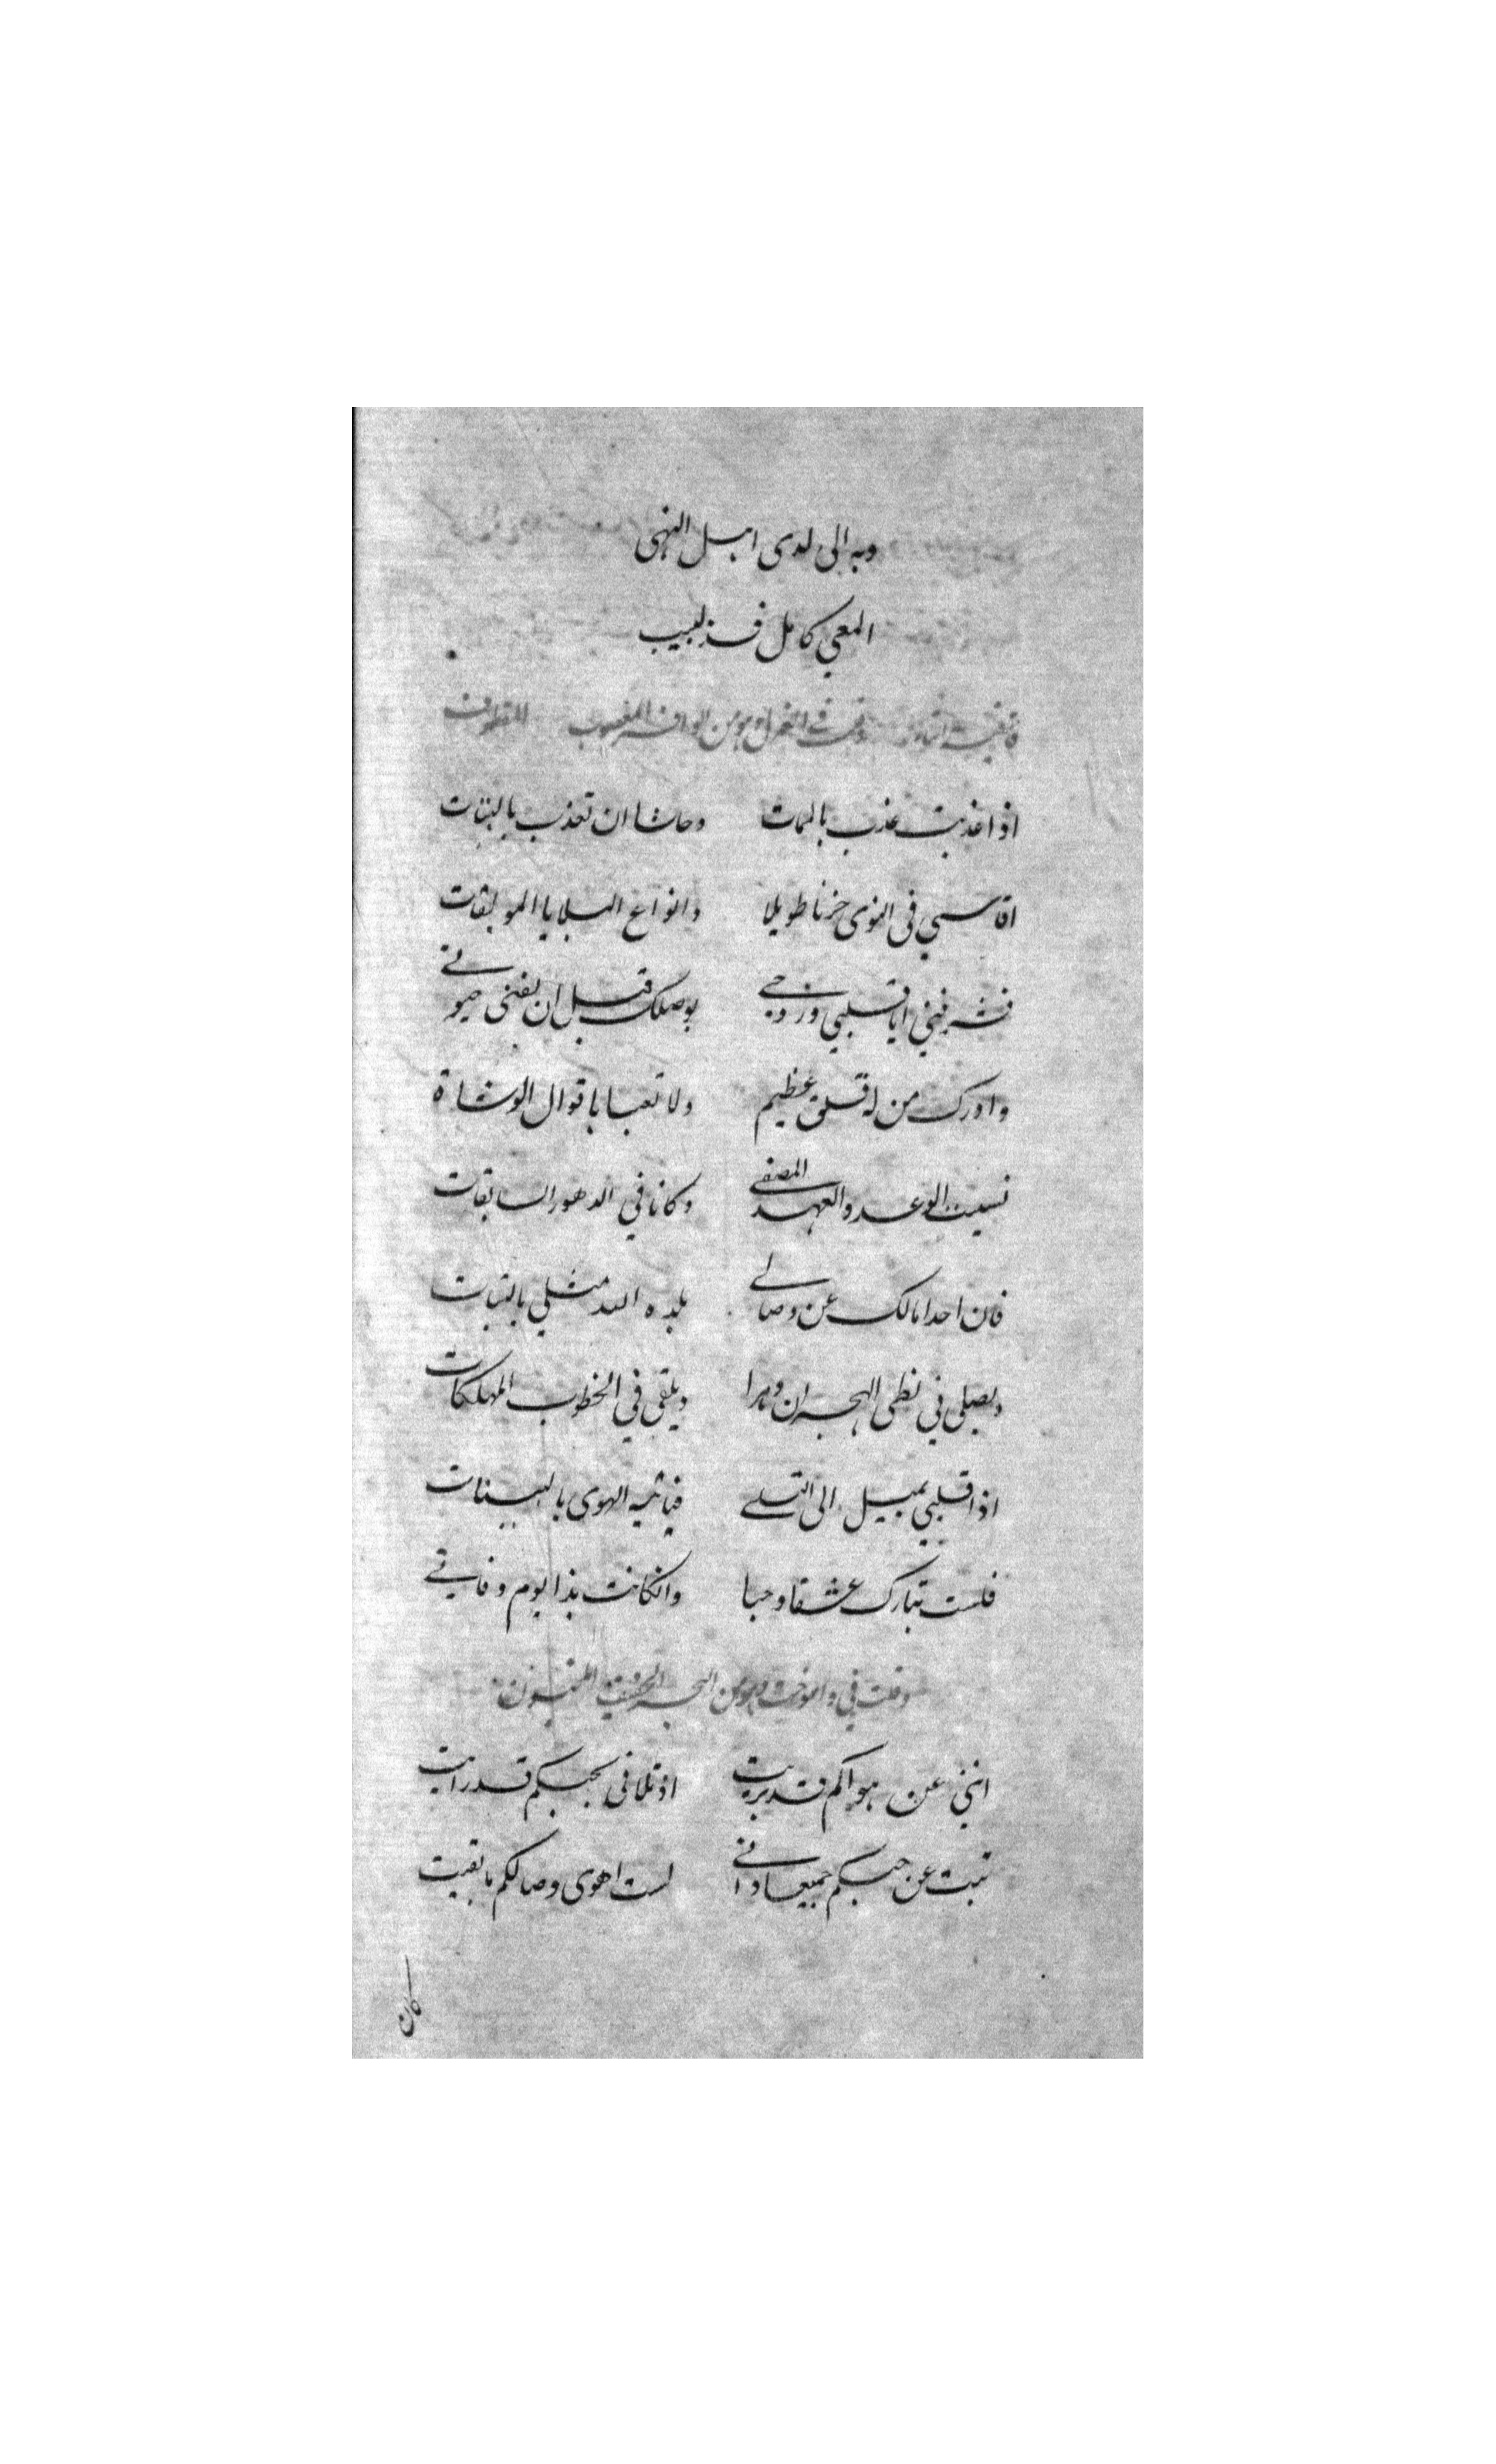 وبه الى لدى اهل النهى
المعي كامل فذ لبيب
قافية التاء وقلت في الغزل وهو من الوافر المعصوب المقطوف
اذا عذبت عذب بالممات وحاشا ان تعذب بالبتات
اقاسي في النوى حزنا طويلا وانواع البلايا الموبقات
فشرفني ايا قلبي وروحي بوصلك قبل ان يفنى حيوتي
وادرك من له قلق عظيم ولا تعبا باقوال الوشاة
نسيت الوعد والعهد المصفى وكانا في الدهور السابقات
فان احد امالك عن وصالي بلاه الله مثلي بالبتات
ويصلى في لظى الهجران دهرا ويلقى في الخطوب المهلكات
اذا قلبي يميل الى التسلي فياتيه الهوى بالبينات
فلست بتارك عشقا وحبا وان كانت بذا يوم وفاتي
وقلت في وهو من البحر الخفيف المخبون
انني عن هواكم قد بريت اذ تلافي بحبكم قد رايت
تبت عن حبكم جميعا واني لست اهوى وصالكم ما بقيت
كان